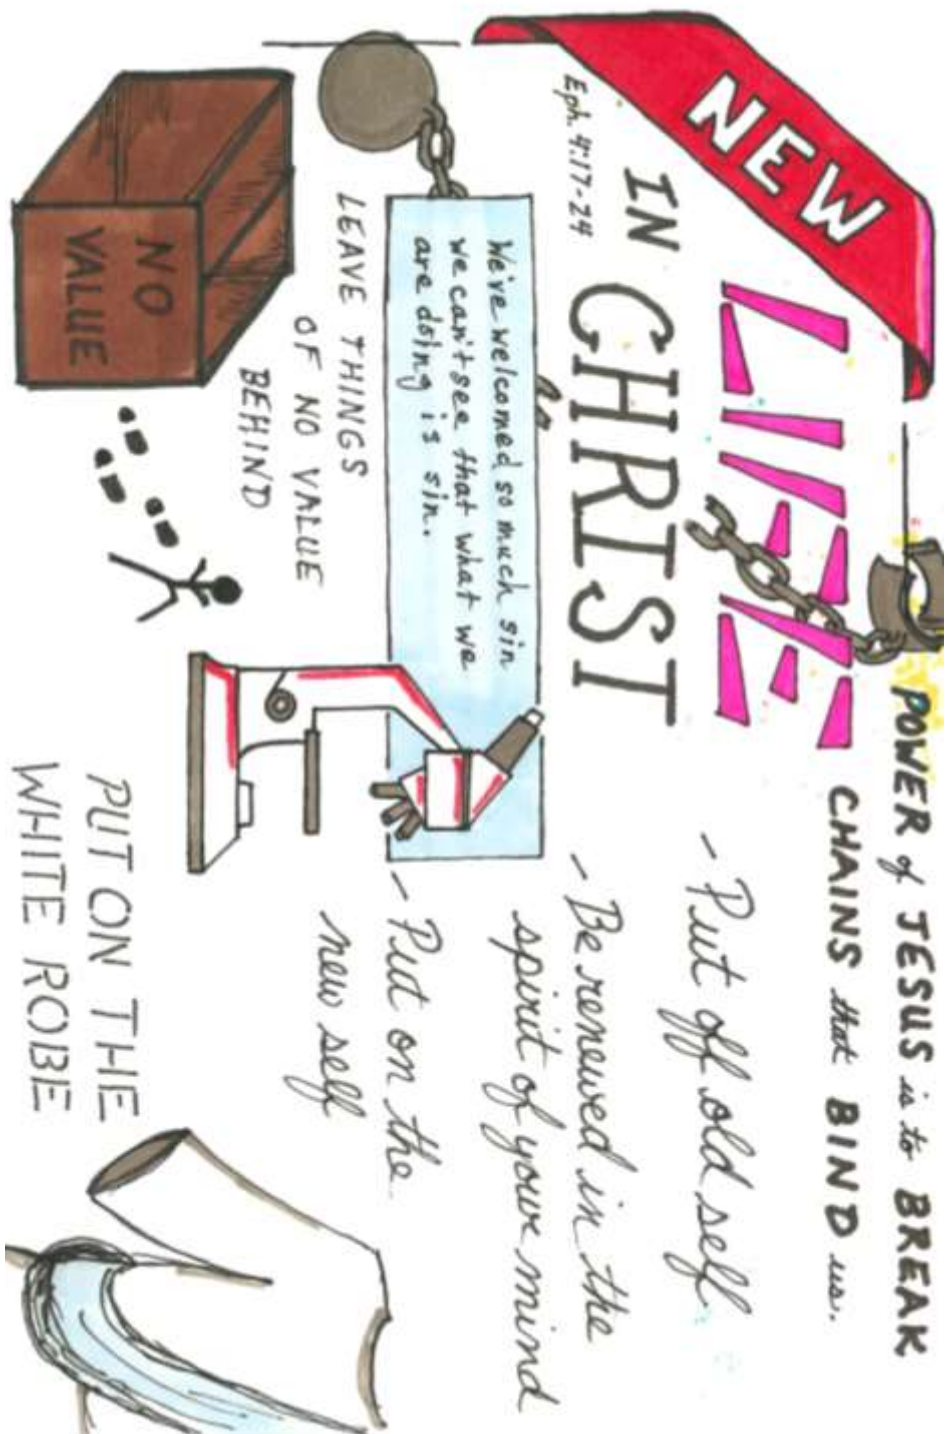 NEW
LIFE
IN CHRIST
Eph. 4:17-24
POWER of JESUS is to BREAK
CHAINS that BIND us.
- Put off old self
- Be renewed in the
spirit of your mind
- Put on the
new self
We've welcomed so much sin
we can't see that what we
are doing is sin.
LEAVE THINGS
OF NO VALUE
BEHIND
NO
VALUE
PUT ON THE
WHITE ROBE